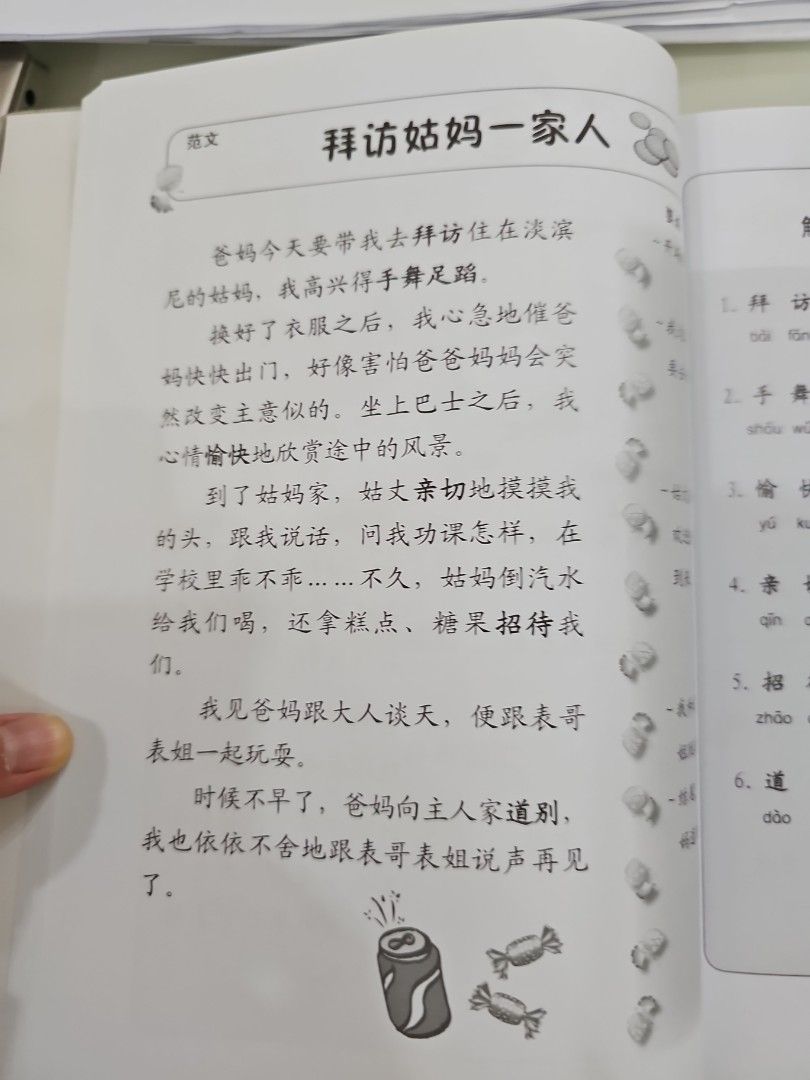 范文
拜访姑妈一家人
爸妈今天要带我去拜访住在淡滨
尼的姑妈，我高兴得手舞足蹈。
换好了衣服之后，我心急地催爸
妈快快出门，好像害怕爸爸妈妈会突
然改变主意似的。坐上巴士之后，我
心情愉快地欣赏途中的风景。
到了姑妈家，姑丈亲切地摸摸我
的头，跟我说话，问我功课怎样，在
学校里乖不乖……不久，姑妈倒汽水
给我们喝，还拿糕点、糖果招待我
们。
我见爸妈跟大人谈天，便跟表哥
表姐一起玩耍。
时候不早了，爸妈向主人家道别，
我也依依不舍地跟表哥表姐说声再见
了。
1. 拜 访
bài fǎn
2. 手 舞
shǒu wǔ
3. 愉 快
yú ku
4. 亲
qīn
5. 招
zhāo
6. 道
dào